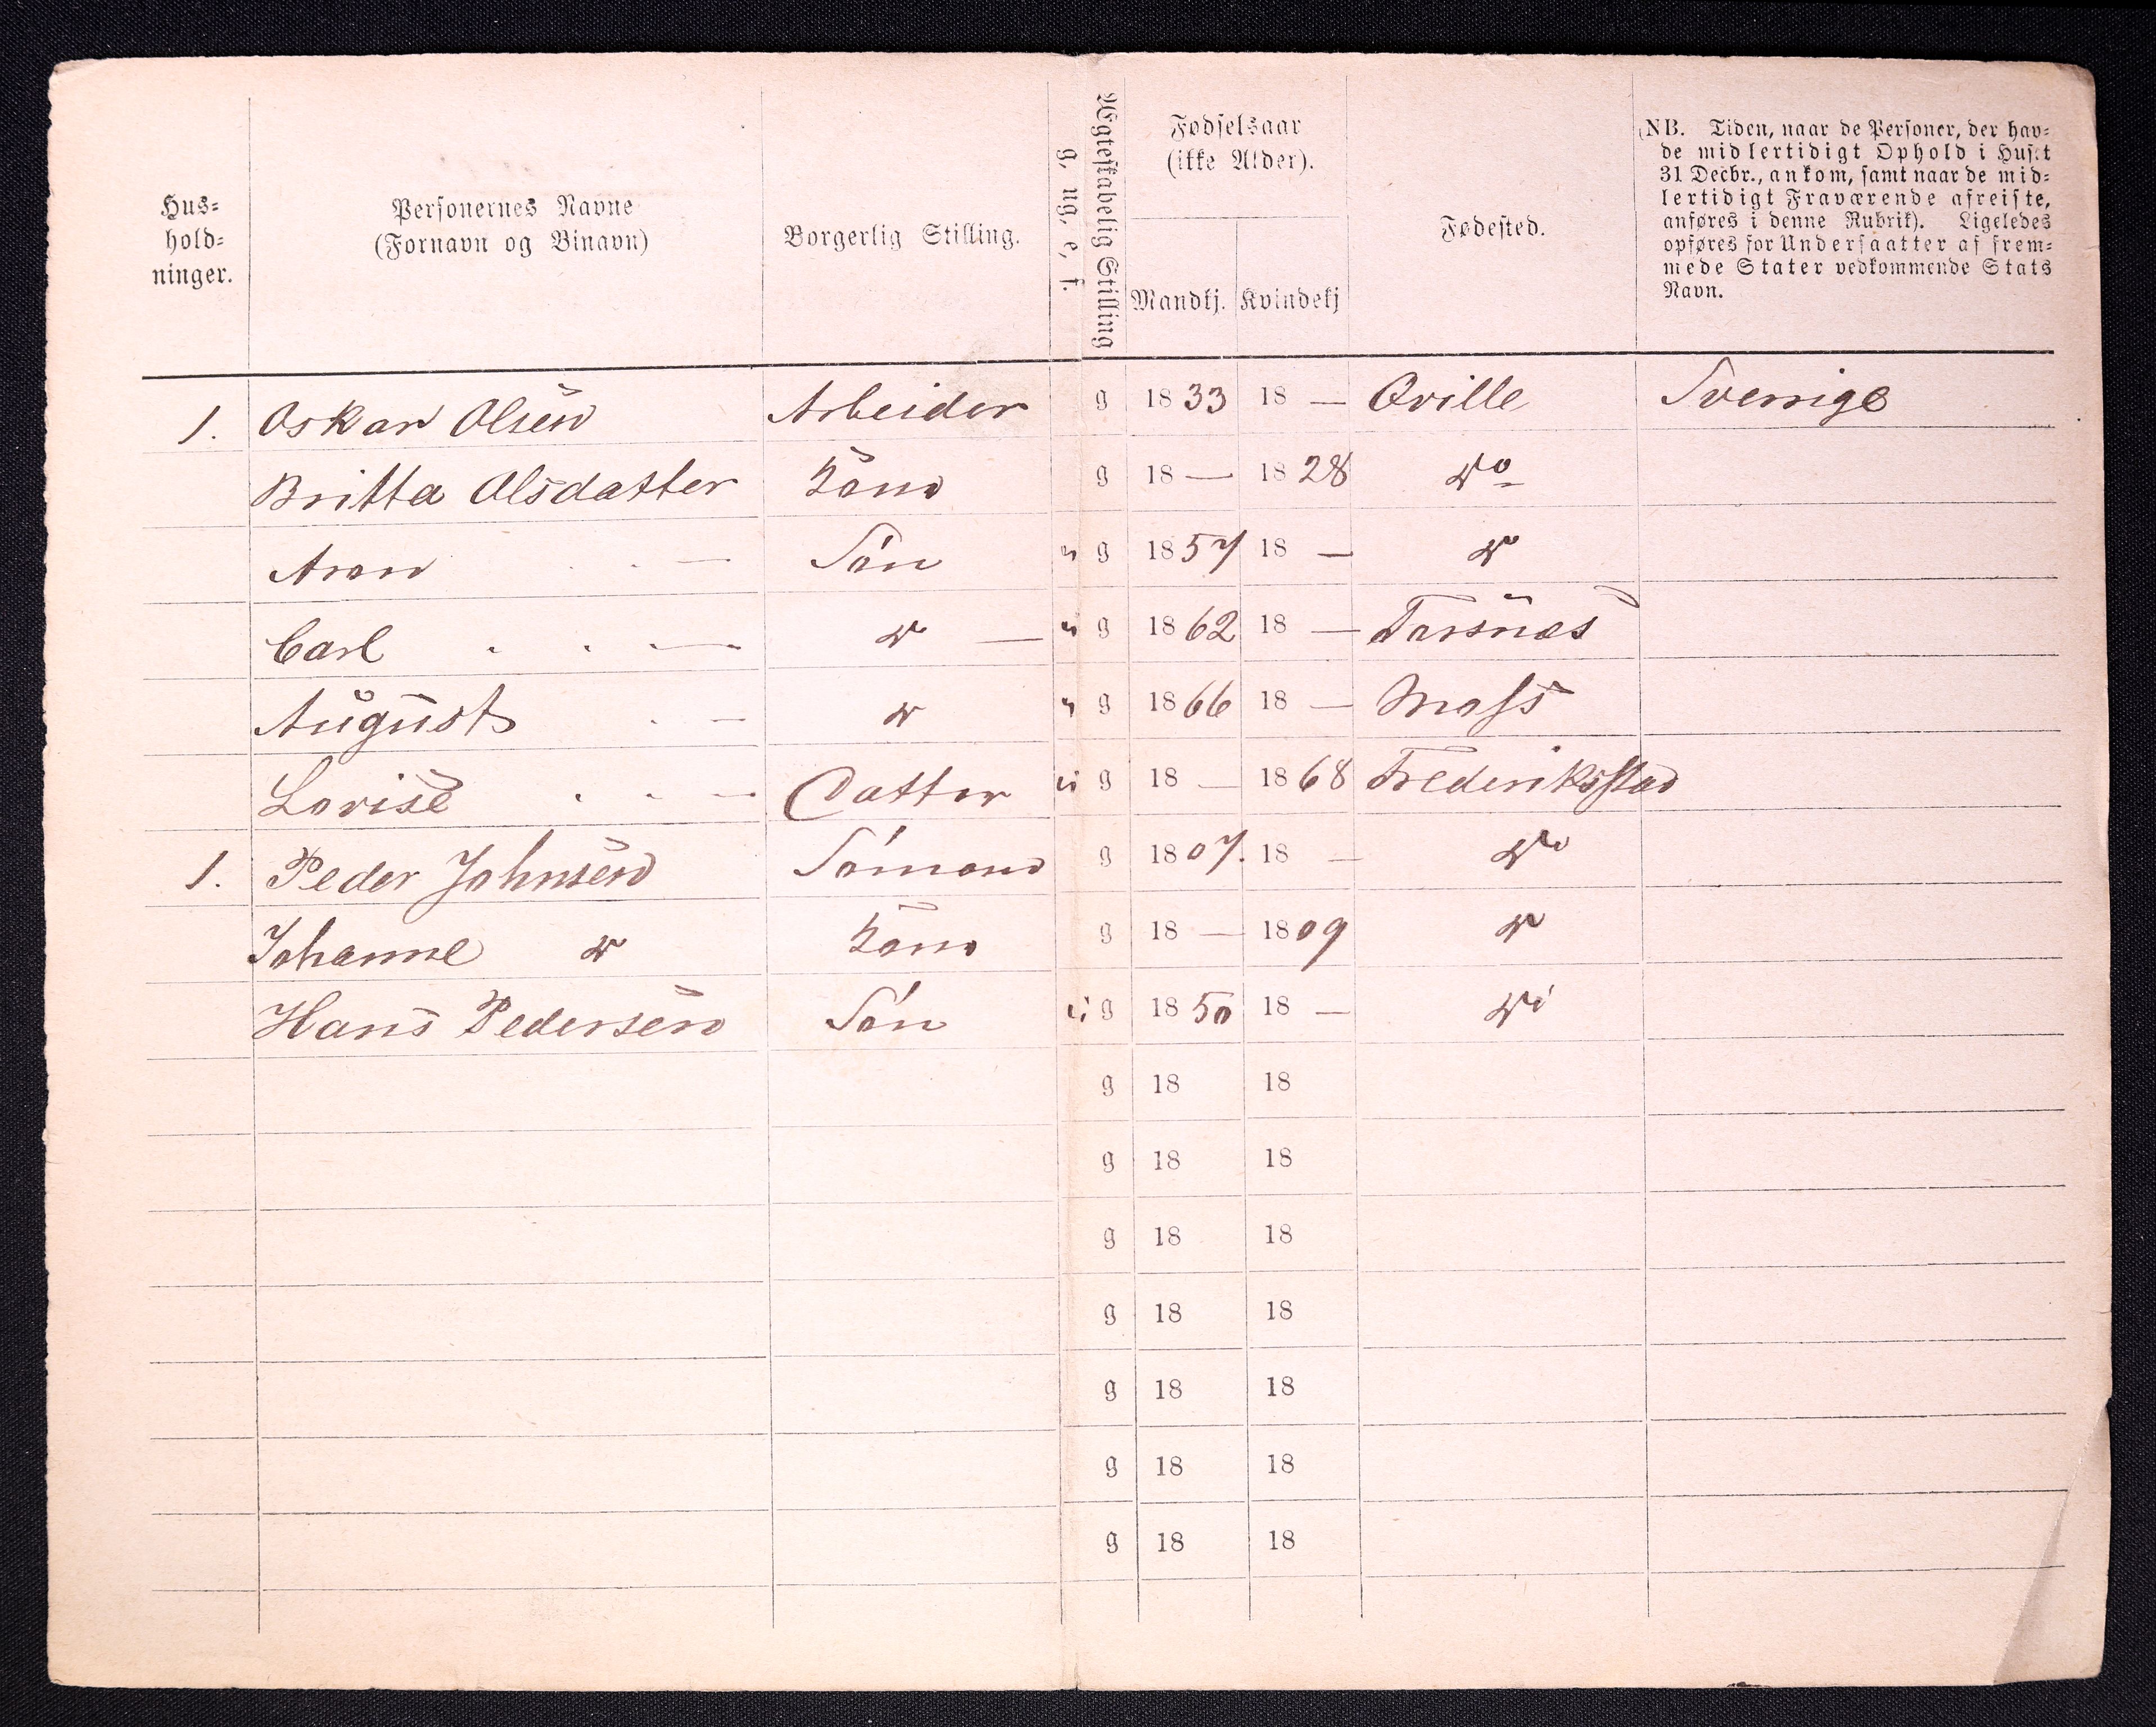 Hus-
hold-
ninger.
Personernes Navne
(Fornavn og Binavn)
Borgerlig Stilling.
Ægteskabelig Stilling
g, ug, e, f.
Fødselsaar
(ikke Alder).
Mandkj. Kvindekj
Fødested.
(NB. Tiden, naar de Personer, der hav-
de midlertidigt Ophold i Huset
31 Decbr., ankom, samt naar de mid-
lertidigt Fraværende afreiste,
anføres i denne Rubrik). Ligeledes
opføres for Undersaatter af frem-
mede Stater vedkommende Stats
Navn.
1. Oskar Olsen Arbeider g 1833 18 — Qville Sverrige
Britta Olsdatter Kone g 18 — 1828 do
Aron — Søn u g 1857 18 — do
Carl — do — u g 1862 18 —
August — do u g 1866 18 — Moss
Lovise — Datter u g 18 — 1868 Frederiksstad
1. Peder Johnsen Sømand g 1807. 18 — do
Johanne do Kone g 18 — 1809 do
Hans Pedersen Søn u g 1850 18 — do
g 18 18
g 18 18
g 18 18
g 18 18
g 18 18
g 18 18
g 18 18